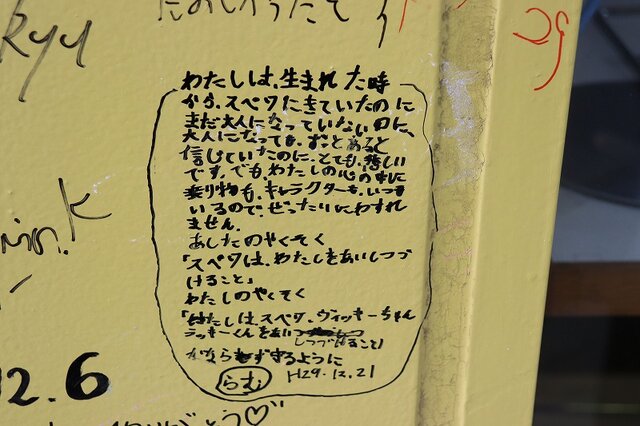 kyu
わたしは、生まれた時
から、スペワにきていたのに
まだ大人になっていないのに、
大人になっても、ずっとあると
信じていたのに、とても、悲しい
です。でも、わたしの心の中に
乗り物も、キャラクターも、いつも
いるので、ぜったいにわすれ
ません。
あしたのやくそく
「スペワは、わたしをあいしつづ
けること」
わたしのやくそく
「わたしは、スペワ、ヴィッキーちゃん
ラッキーくんをあい
しつづけること」
かならず守るように
らむ H29.12.21
12.6
ありがとう♡